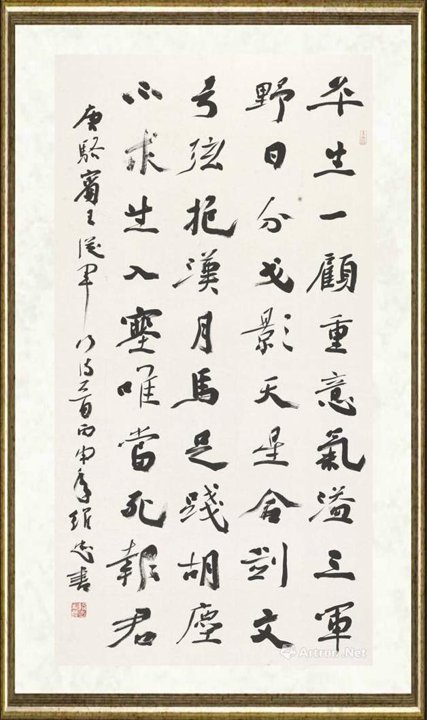 平生一顧重意氣溢三軍
野日分戈影天星合劍文
弓弦抱漢月馬足踐胡塵
不求生入塞唯當死報君
唐駱賓王從軍行詩一首丙申年書
Artron.Net